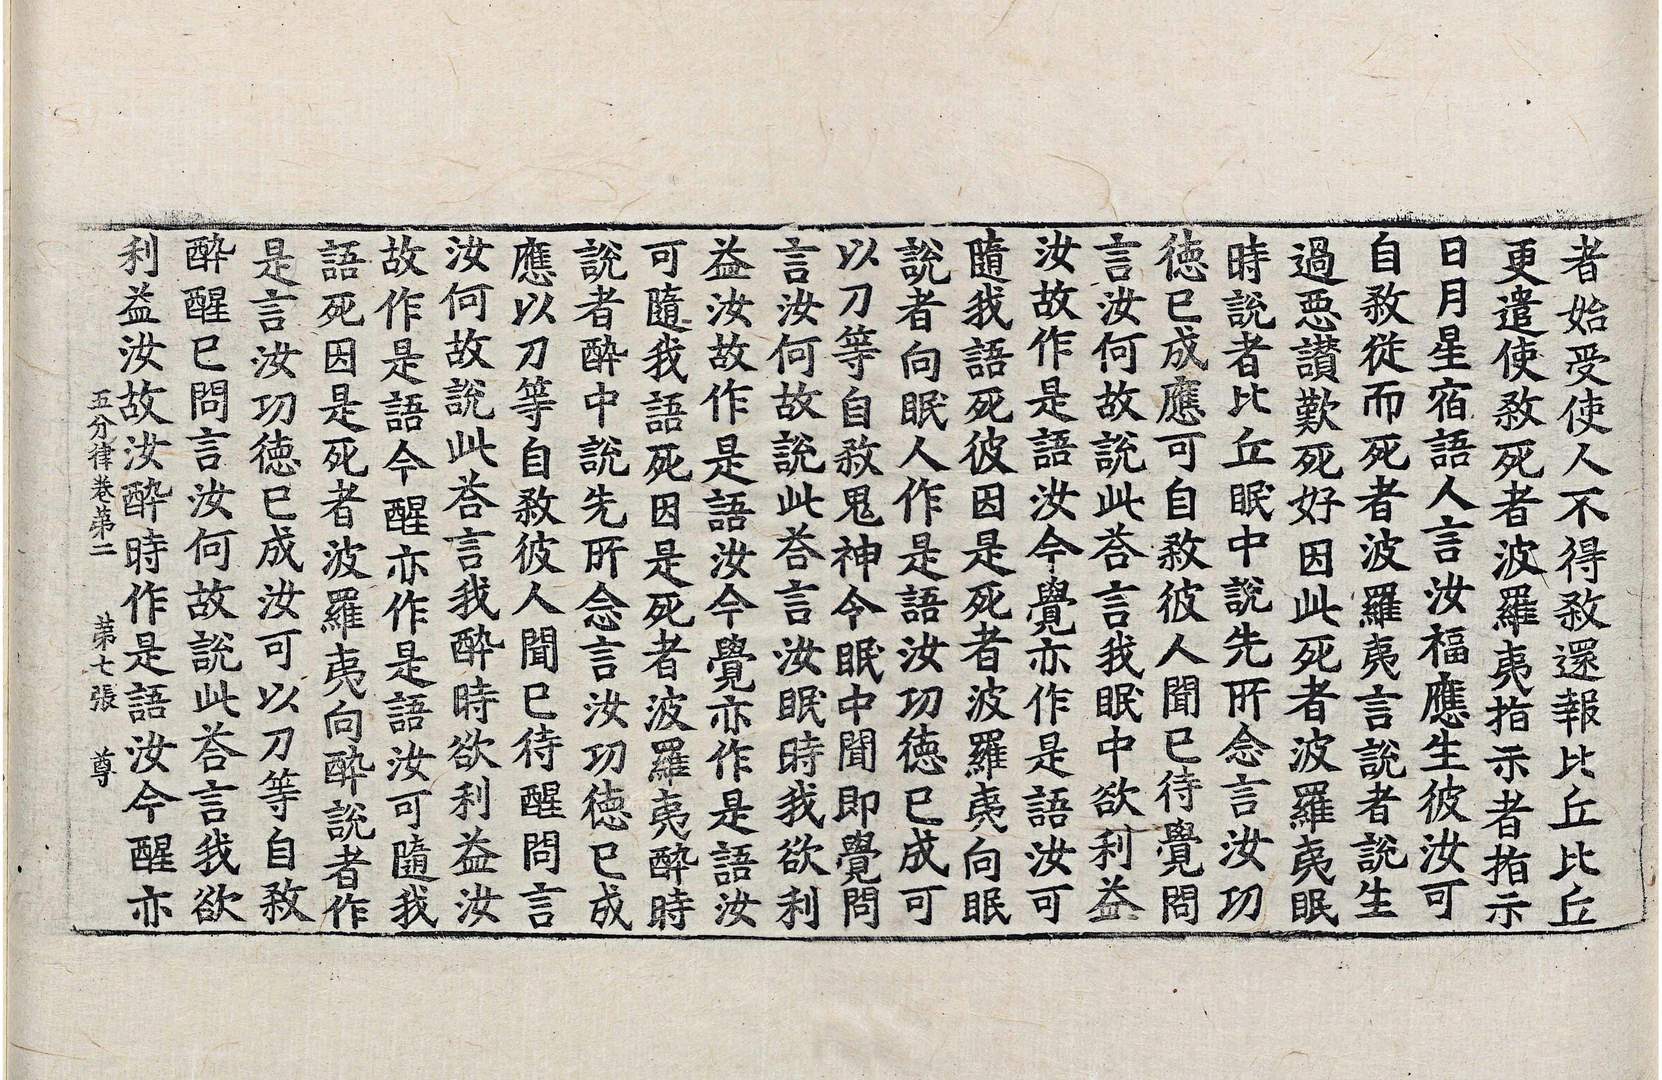 者始受使人不得敎還報比丘比丘
更遣使敎死者波羅夷指示者指示
日月星宿語人言汝福應生彼汝可
自敎從而死者波羅夷言說者說生
過惡讃歎死好因此死者波羅夷眠
時說者比丘眠中說先所念言汝功
徳已成應可自敎彼人聞已待覺問
言汝何故說此荅言我眠中欲利益
汝故作是語汝今覺亦作是語汝可
隨我語死彼因是死者波羅夷向眠
說者向眠人作是語汝功徳已成可
以刀等自敎鬼神令眠中聞即覺問
言汝何故說此荅言汝眠時我欲利
益汝故作是語汝今覺亦作是語汝
可隨我語死因是死者波羅夷醉時
說者醉中說先所念言汝功徳已成
應以刀等自敎彼人聞已待醒問言
汝何故說此荅言我醉時欲利益汝
故作是語今醒亦作是語汝可隨我
語死因是死者波羅夷向醉說者作
是言汝功徳已成汝可以刀等自敎
醉醒已問言汝何故說此荅言我欲
利益汝故汝醉時作是語汝今醒亦
五分律卷第二 第七張 尊